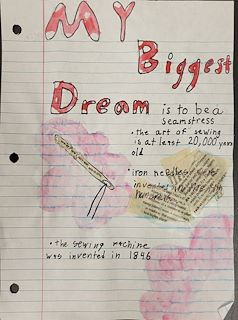 MY
Biggest
Dream is to be a
seamstress
• the art of sewing
is at least 20,000 years
old
• iron needles were
invented
• the sewing machine
was invented in 1896